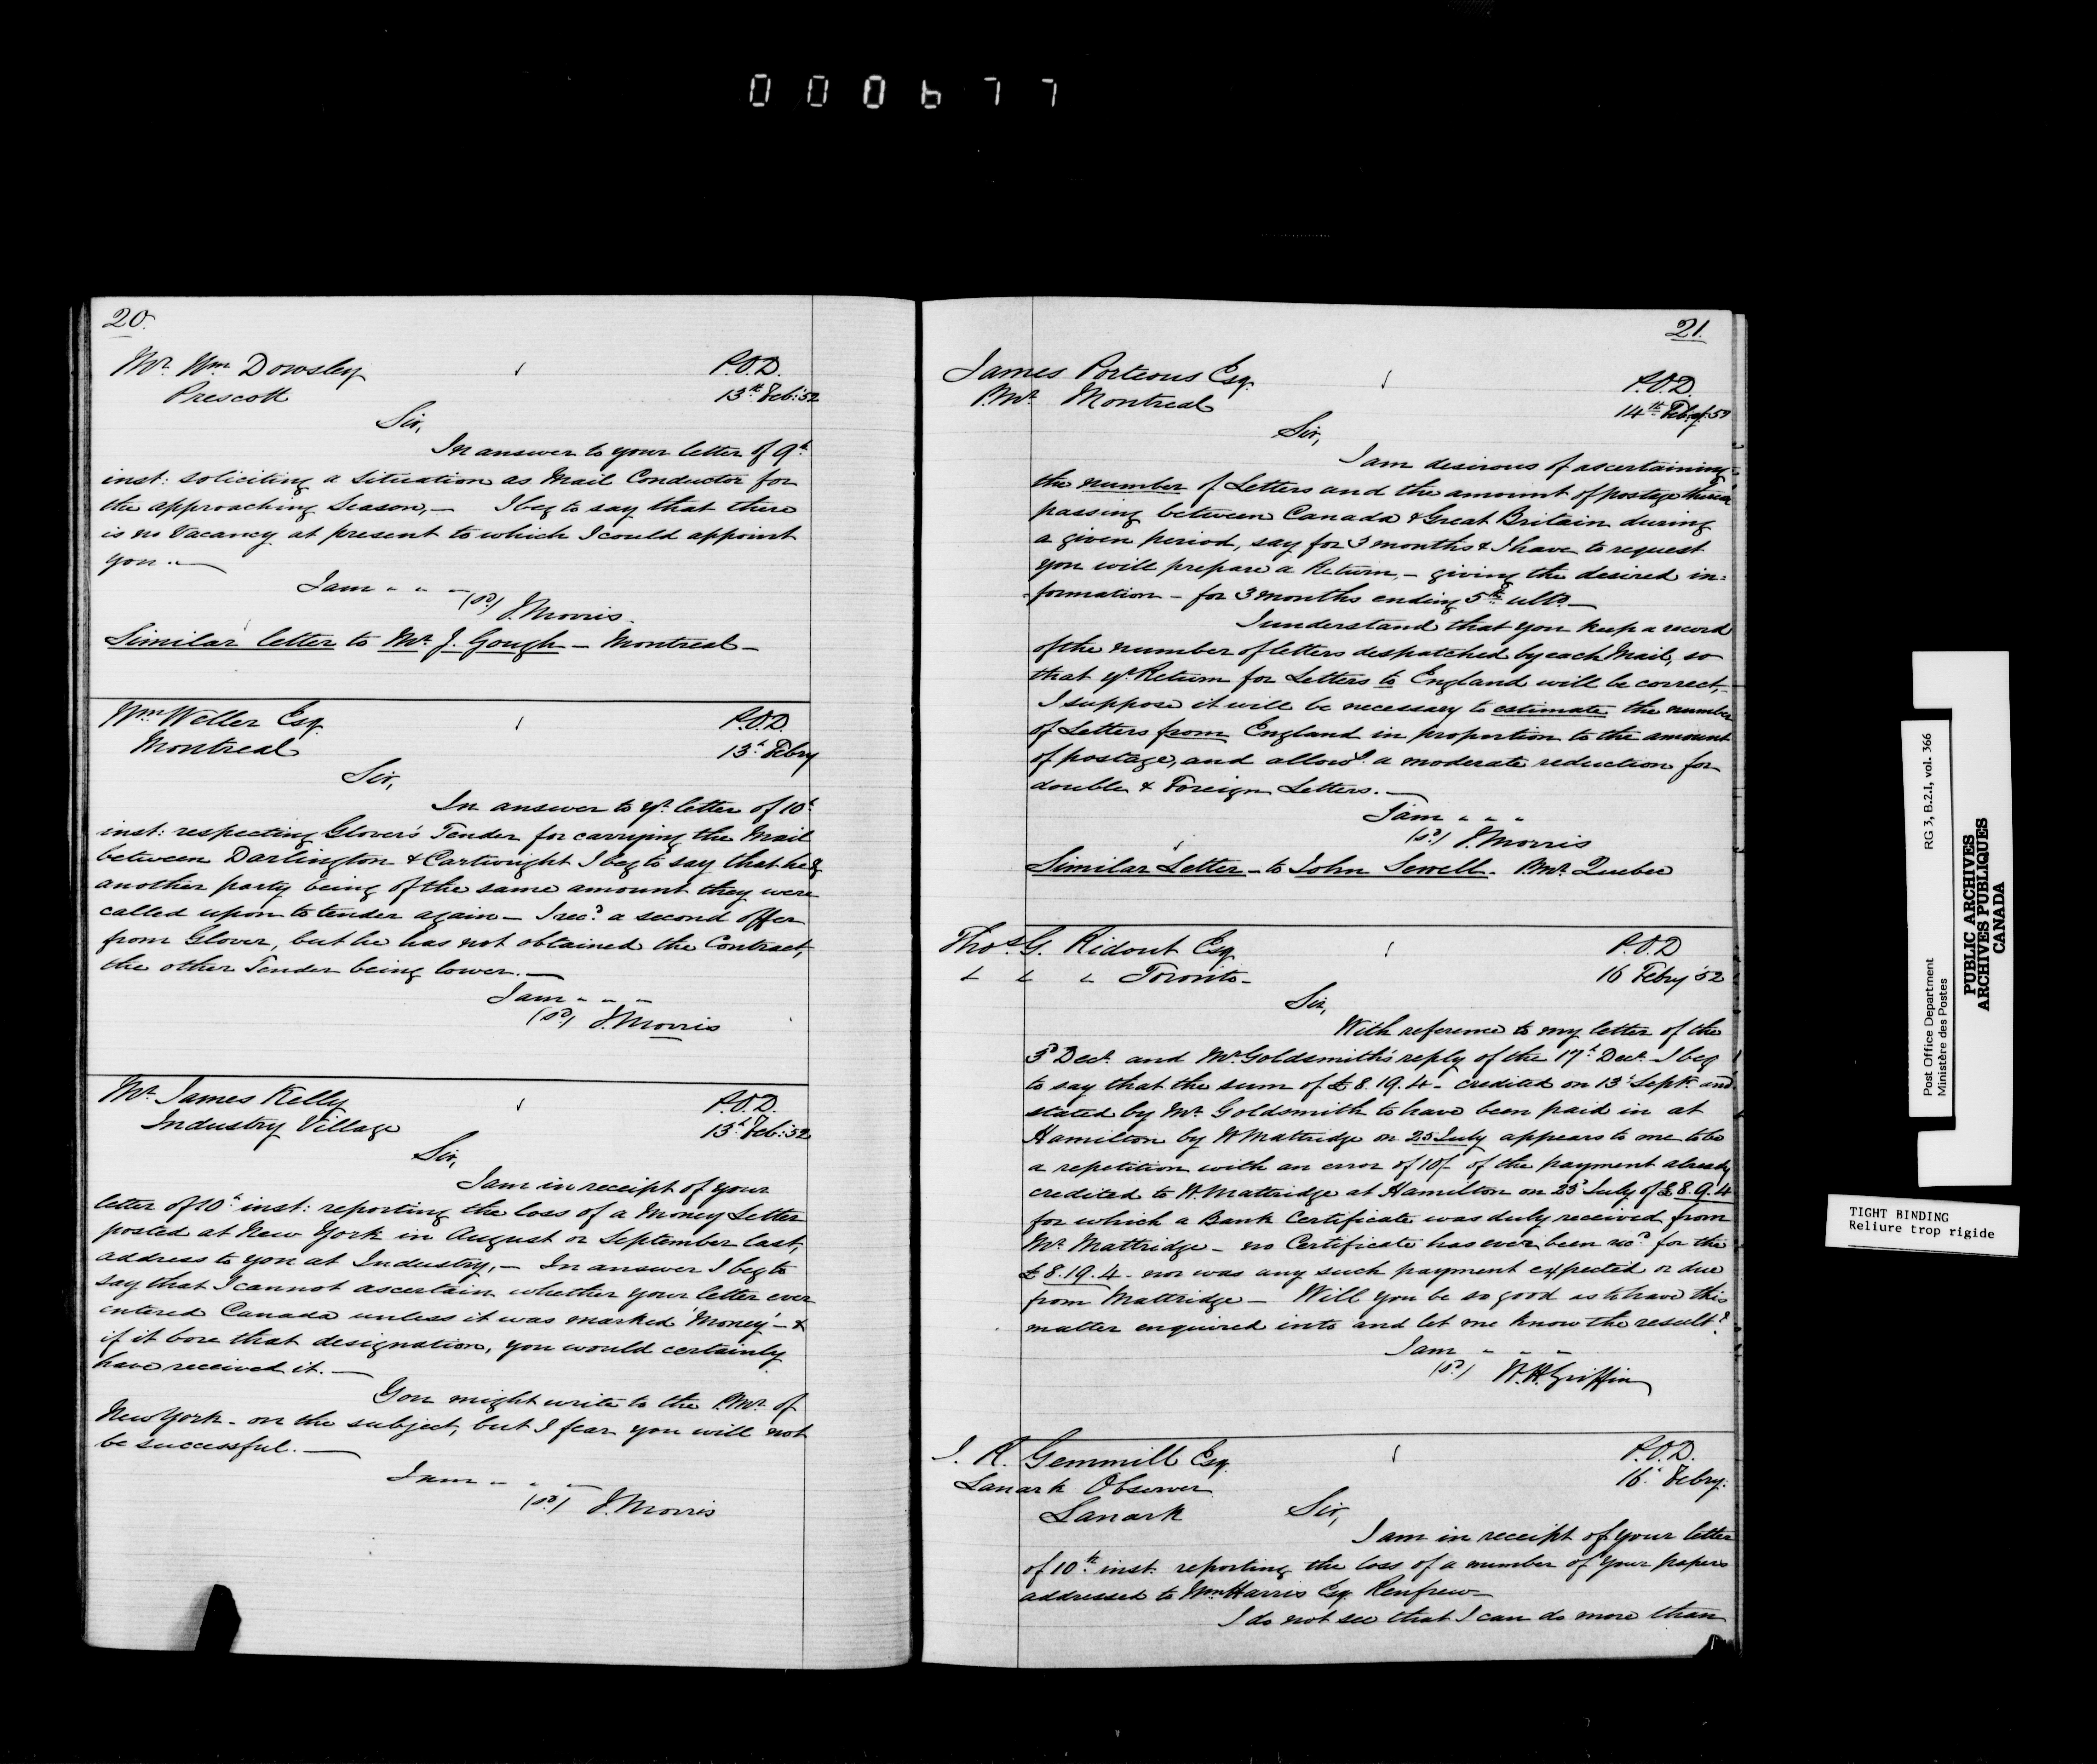 000677
20.
Mr. Wm Dowsley
P.O.D.
Prescott
13th Feb: 52
Sir,
In answer to your letter of 9th
inst: soliciting a situation as Mail Conductor for
the approaching Season, — I beg to say that there
is no Vacancy at present to which I could appoint
you. —
I am " " "
(sd) J. Morris.
Similar letter to Mr. J. Gough — Montreal —
Wm Weller Esq.
P.O.D.
Montreal
13th Febry
Sir,
In answer to yr. letter of 10th
inst: respecting Glover's Tender for carrying the Mail
between Darlington & Cartwright I beg to say that he &
another party being of the same amount they were
called upon to tender again — I recd. a second offer
from Glover, but he has not obtained the Contract,
the other Tender being lower. —
I am " " "
(sd) J. Morris
Mr. James Kelly
P.O.D.
Industry Village
13th Feb: 52
Sir,
I am in receipt of your
letter of 10th inst: reporting the loss of a Money Letter
posted at New York in August or September last,
address to you at Industry, — In answer I beg to
say that I cannot ascertain whether your letter ever
entered Canada unless it was marked 'Money' — &
if it bore that designation, you would certainly
have received it. —
You might write to the P.Mr. of
New York — on the subject, but I fear you will not
be successful. —
I am " " "
(sd) J. Morris
21.
James Porteous Esq.
P.O.D.
P.Mr. Montreal
14th Feby. 52
Sir,
I am desirous of ascertaining
the number of Letters and the amount of postage thereon
passing between Canada & Great Britain during
a given period, say for 3 months & I have to request
you will prepare a Return, — giving the desired in=
=formation — for 3 months ending 5th ulto. —
I understand that you keep a record
of the number of letters despatched by each Mail, so
that yr. Return for Letters to England will be correct, —
I suppose it will be necessary to estimate the number
of Letters from England in proportion to the amount
of postage, and allowg. a moderate reduction for
double & Foreign Letters. —
I am " " "
(sd) J. Morris
Similar Letter — to John Sewell — P.Mr. Quebec
Thos. G. Ridout Esq.
P.O.D
" " " Toronto —
16 Febry '52
Sir,
With reference to my letter of the
3d Decr. and Mr. Goldsmith's reply of the 17th Decr. I beg
to say that the sum of £8.19.4 — credited on 13th Septr. and
stated by Mr. Goldsmith to have been paid in at
Hamilton by W. Mattridge on 25 July appears to me to be
a repetition with an error of 10/- of the payment already
credited to W. Mattridge at Hamilton on 25th July of £8.9.4
for which a Bank Certificate was duly received from
Mr. Mattridge — no Certificate has ever been recd. for the
£8.19.4 — nor was any such payment expected or due
from Mattridge — Will you be so good as to have this
matter enquired into and let me know the result?
I am " " "
(sd) W.H. Griffin
J. R. Gemmill Esq.
P.O.D.
Lanark Observer
16th Febry:
Lanark
Sir,
I am in receipt of your letter
of 10th inst. reporting the loss of a number of your papers
addressed to Wm Harris Esq. Renfrew —
I do not see that I can do more than
Post Office Department RG 3, B.2.I, vol. 366
Ministère des Postes
PUBLIC ARCHIVES
ARCHIVES PUBLIQUES
CANADA
TIGHT BINDING
Reliure trop rigide